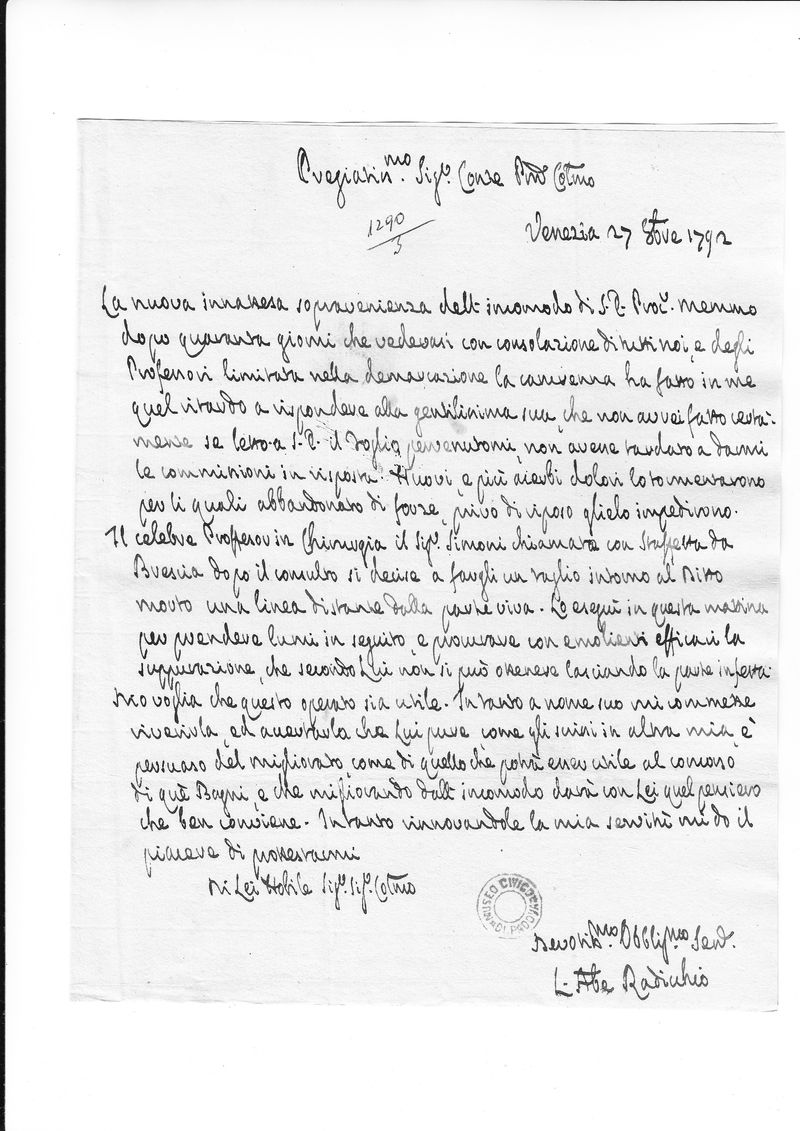 Pregiatiss.mo Sig.r Conte Pne Colmo
1290
3
Venezia 27 8bre 1792
La nuova innattesa sopravenienza dell' incomodo di S. E. Proc.r Memmo
dopo quaranta giorni che vedevasi con consolazione di tutti noi, e degli
Professori limitata nella demarcazione la cancrenna ha fatto in me
quel ritardo a rispondere alla gentilissima sua, che non avrei fatto certa-
mente se letto a S. E. il foglio pervenutomi, non avesse tardato a darmi
le commissioni in risposta. Nuovi, e più acerbi dolori lo tormentarono
per li quali abbandonato di forze, privo di riposo glielo impedirono.
Il celebre Professor in Chirurgia il Sig.r Simoni chiamato con Staffetta da
Brescia dopo il consulto si decise a fargli un taglio intorno al Ditto
morto una linea distante dalla parte viva. Lo eseguì in questa mattina
per prendere lumi in seguito, e procurare con emolienti efficaci la
suppurazione, che secondo Lui non si può ottenere lasciando la parte infetta.
Dio voglia che questo operato sia utile. Intanto a nome suo mi commette
riverirla, ed accertarla che Lui pure, come gli scrissi in altra mia, è
persuaso del migliorato, come di quello che potrà esser utile al concorso
di quei Bagni, e che migliorando dall' incomodo darà con Lei quel pensiero
che ben conviene. Intanto rinnovandole la mia servitù mi do il
piacere di protestarmi
Di Lei Nobile Sig.r Sig.r Colmo
MUSEO CIVICO DI PADOVA
Devotiss.mo Obblig.mo Serv.
L. Abe Radicchio